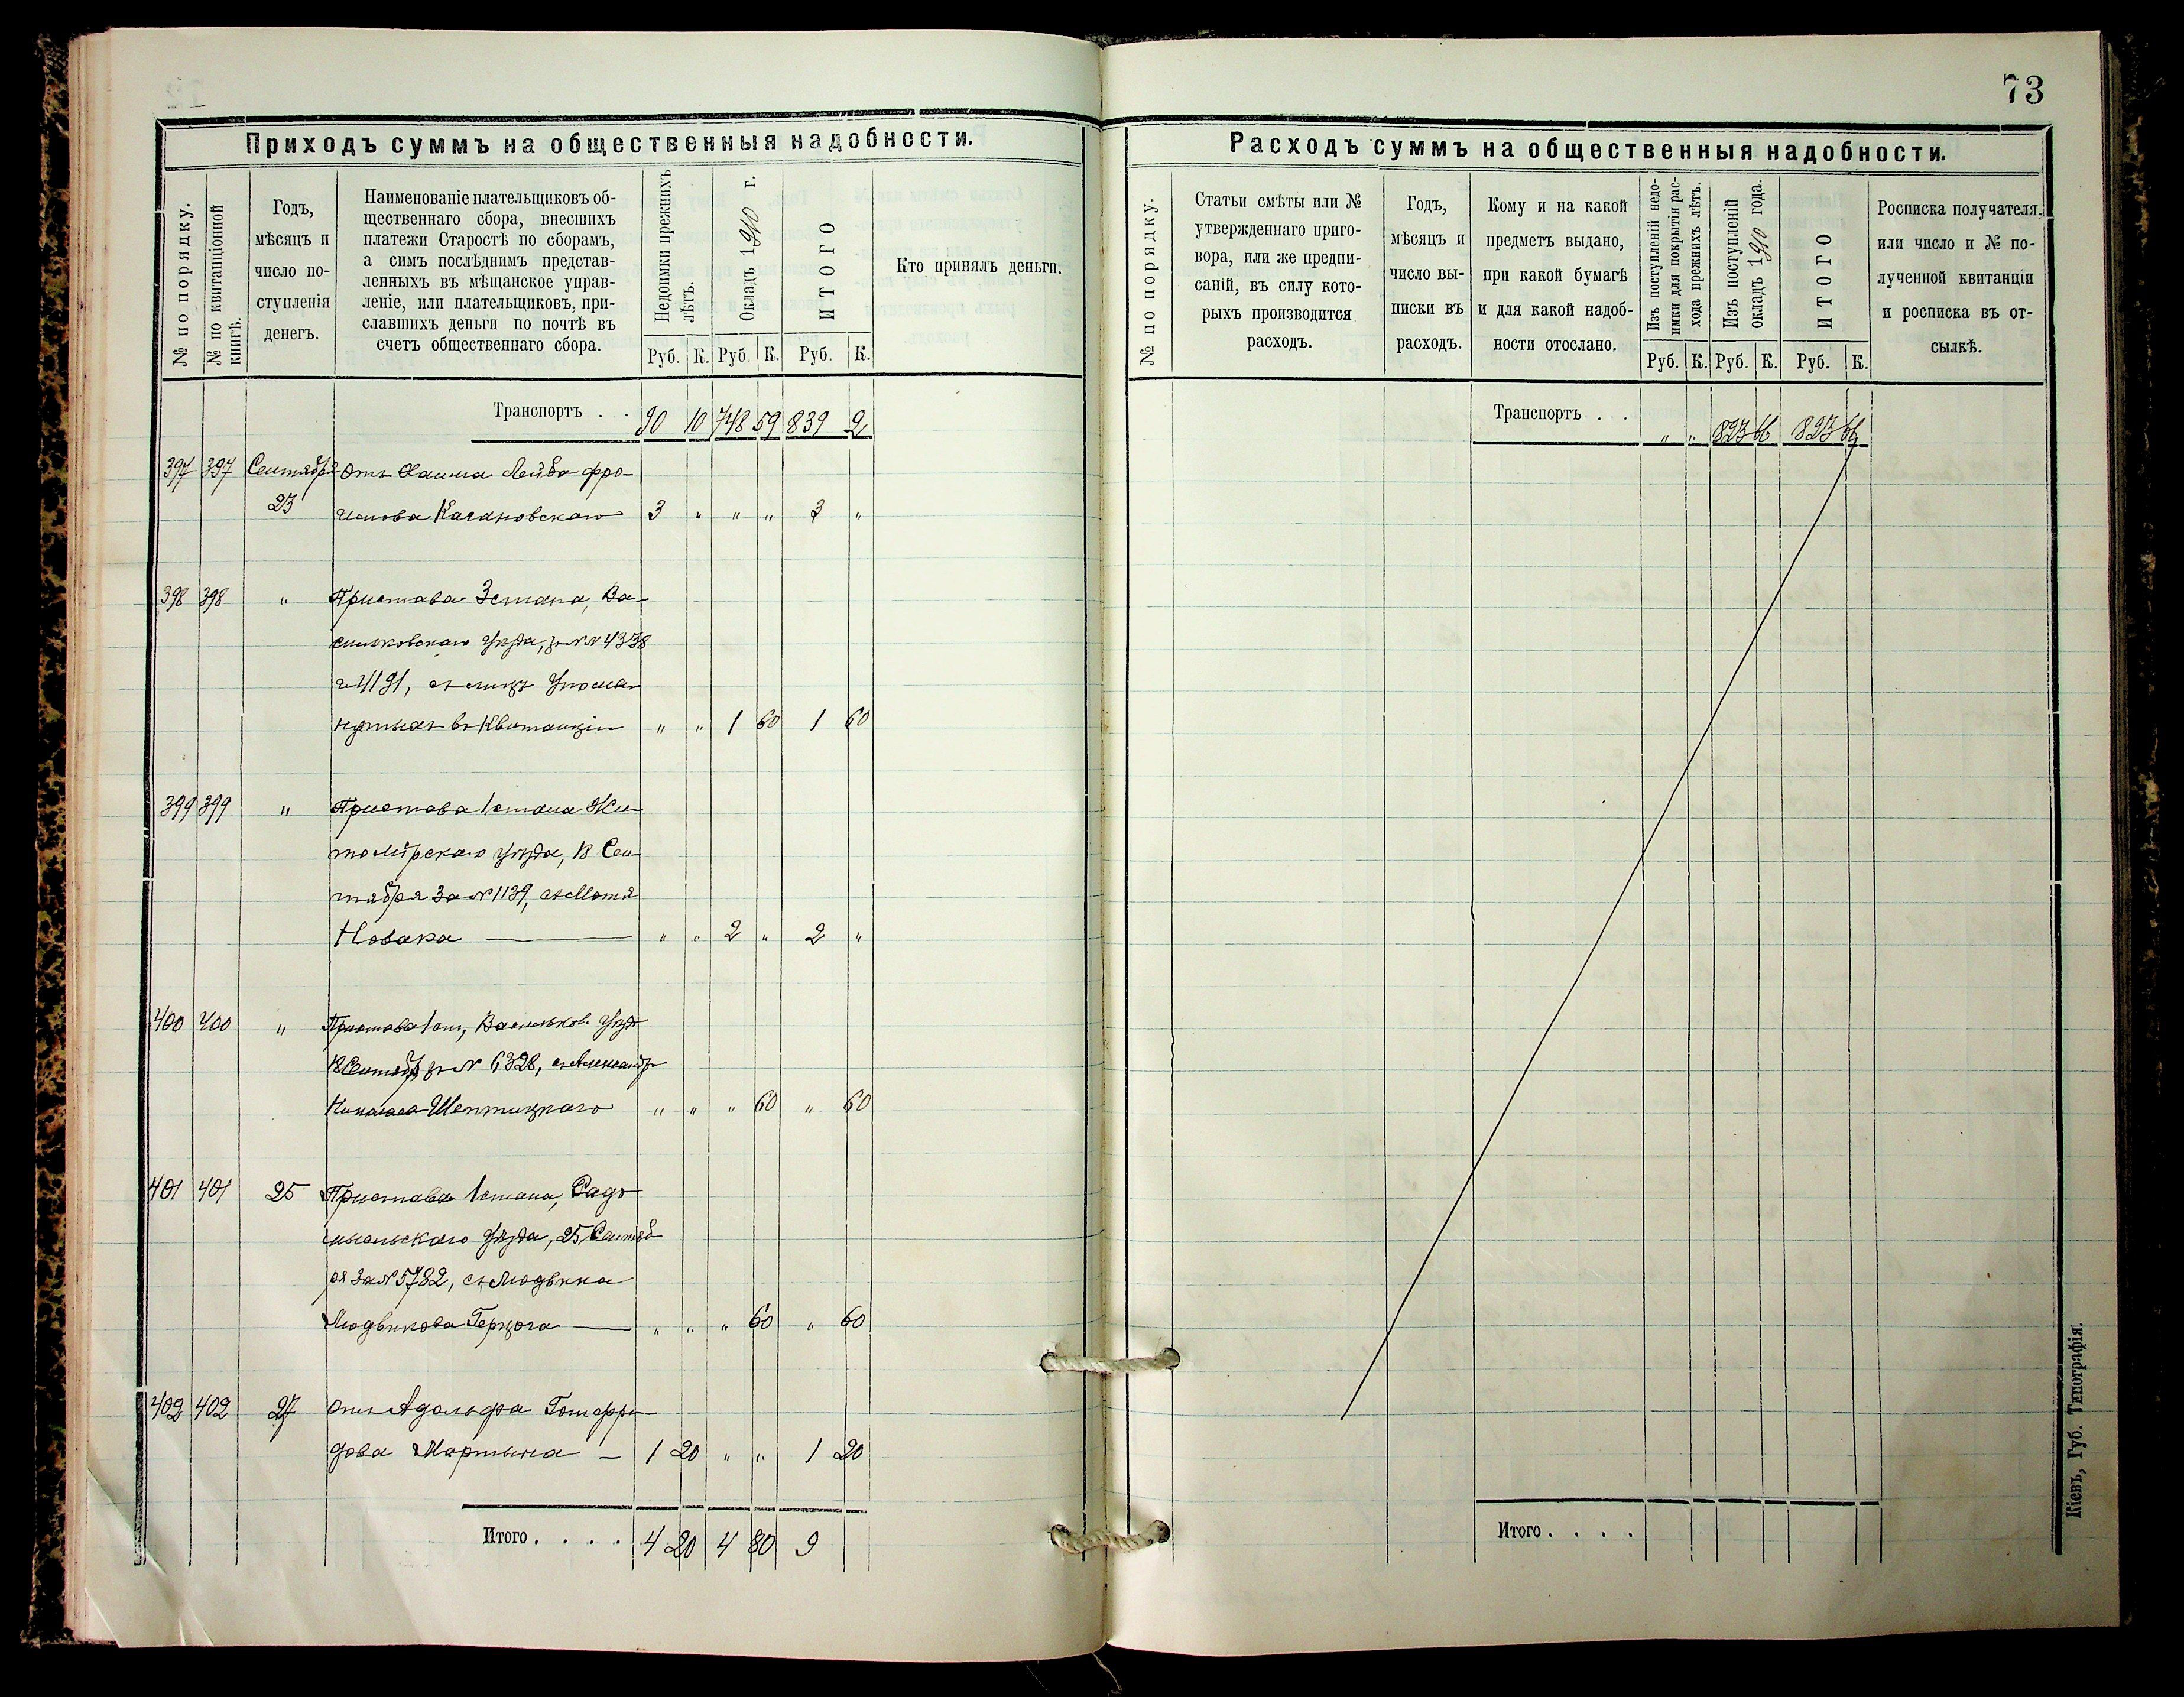 73
Приходъ суммъ на общественныя надобности.
№ по порядку.
№ по квитанціонной книгѣ.
Годъ,
мѣсяцъ и
число по-
ступленія
денегъ.
Наименованіе плательщиковъ об-
щественнаго сбора, внесшихъ
платежи Старостѣ по сборамъ,
а симъ послѣднимъ представ-
ленныхъ въ мѣщанское управ-
леніе, или плательщиковъ, при-
славшихъ деньги по почтѣ въ
счетъ общественнаго сбора.
Недоимки прежнихъ лѣтъ.
Окладъ 1910 г.
ИТОГО
Кто принялъ деньги.
Руб. К. Руб. К. Руб. К.
Транспортъ . . 90 10 748 59 839 2
397 397 Сентября Отъ Хаима Лейба Фро-
23 имова Кагановскаго 3 " " " 3 "
398 398 " Пристава 3 стана, Ва-
сильковскаго уѣзда, за №№ 4338
и 4191, съ лицъ упомя-
нутыхъ въ квитанціи " " 1 60 1 60
399 399 " Пристава 1 стана Жи-
томірскаго уѣзда, 18 Сен-
тября за № 1139, съ Мотя
Новака — " " 2 " 2 "
400 400 " Пристава 1 ст, Васильков. уѣзд
18 Сентяб за № 6328, съ Александр
Николаева Шептицкаго " " " 60 " 60
401 401 25 Пристава 1 стана, Радо
мысльскаго уѣзда, 25 Сентяб
ря за № 5782, съ Людвика
Людвикова Герцога — " " " 60 " 60
402 402 27 Отъ Адольфа Готфри-
дова Мартына — 1 20 " " 1 20
Итого . . . . 4 20 4 80 9
Расходъ суммъ на общественныя надобности.
№ по порядку.
Статьи смѣты или №
утвержденнаго приго-
вора, или же предпи-
саній, въ силу кото-
рыхъ производится
расходъ.
Годъ,
мѣсяцъ и
число вы-
писки въ
расходъ.
Кому и на какой
предметъ выдано,
при какой бумагѣ
и для какой надоб-
ности отослано.
Изъ поступленій недо-
имки для покрытія рас-
хода прежнихъ лѣтъ.
Изъ поступленій
окладъ 1910 года.
ИТОГО
Росписка получателя,
или число и № по-
лученной квитанціи
и росписка въ от-
сылкѣ.
Руб. К. Руб. К. Руб. К.
Транспортъ . . " " 823 66 823 66
Итого . . . .
Кіевъ, Губ. Типографія.